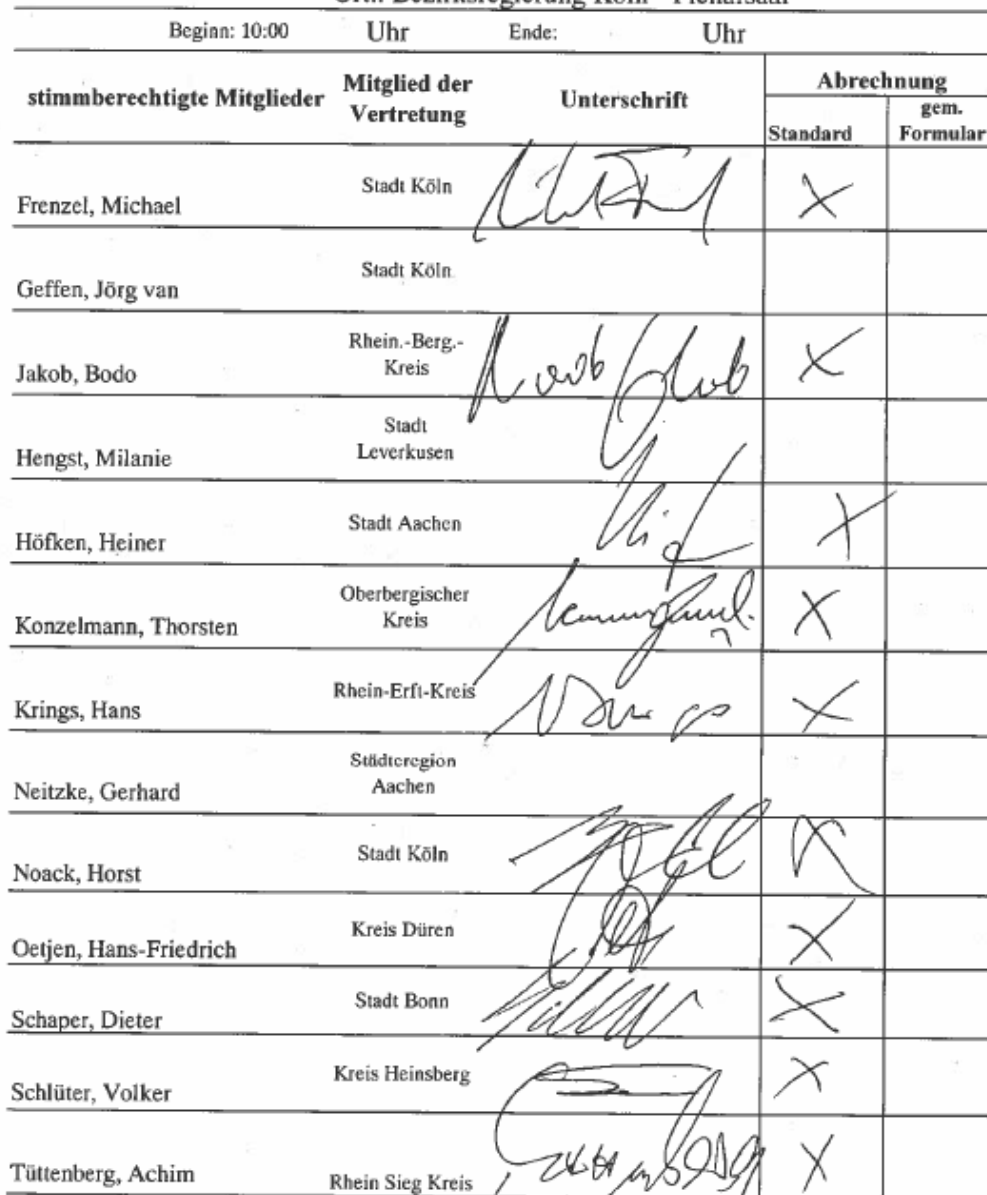 Beginn: 10:00 Uhr Ende: Uhr
stimmberechtigte Mitglieder Mitglied der Vertretung Unterschrift Abrechnung
Standard gem. Formular
Frenzel, Michael Stadt Köln X
Geffen, Jörg van Stadt Köln
Jakob, Bodo Rhein.-Berg.-Kreis X
Hengst, Milanie Stadt Leverkusen
Höfken, Heiner Stadt Aachen X
Konzelmann, Thorsten Oberbergischer Kreis X
Krings, Hans Rhein-Erft-Kreis X
Neitzke, Gerhard Städteregion Aachen
Noack, Horst Stadt Köln X
Oetjen, Hans-Friedrich Kreis Düren X
Schaper, Dieter Stadt Bonn X
Schlüter, Volker Kreis Heinsberg X
Tüttenberg, Achim Rhein Sieg Kreis X